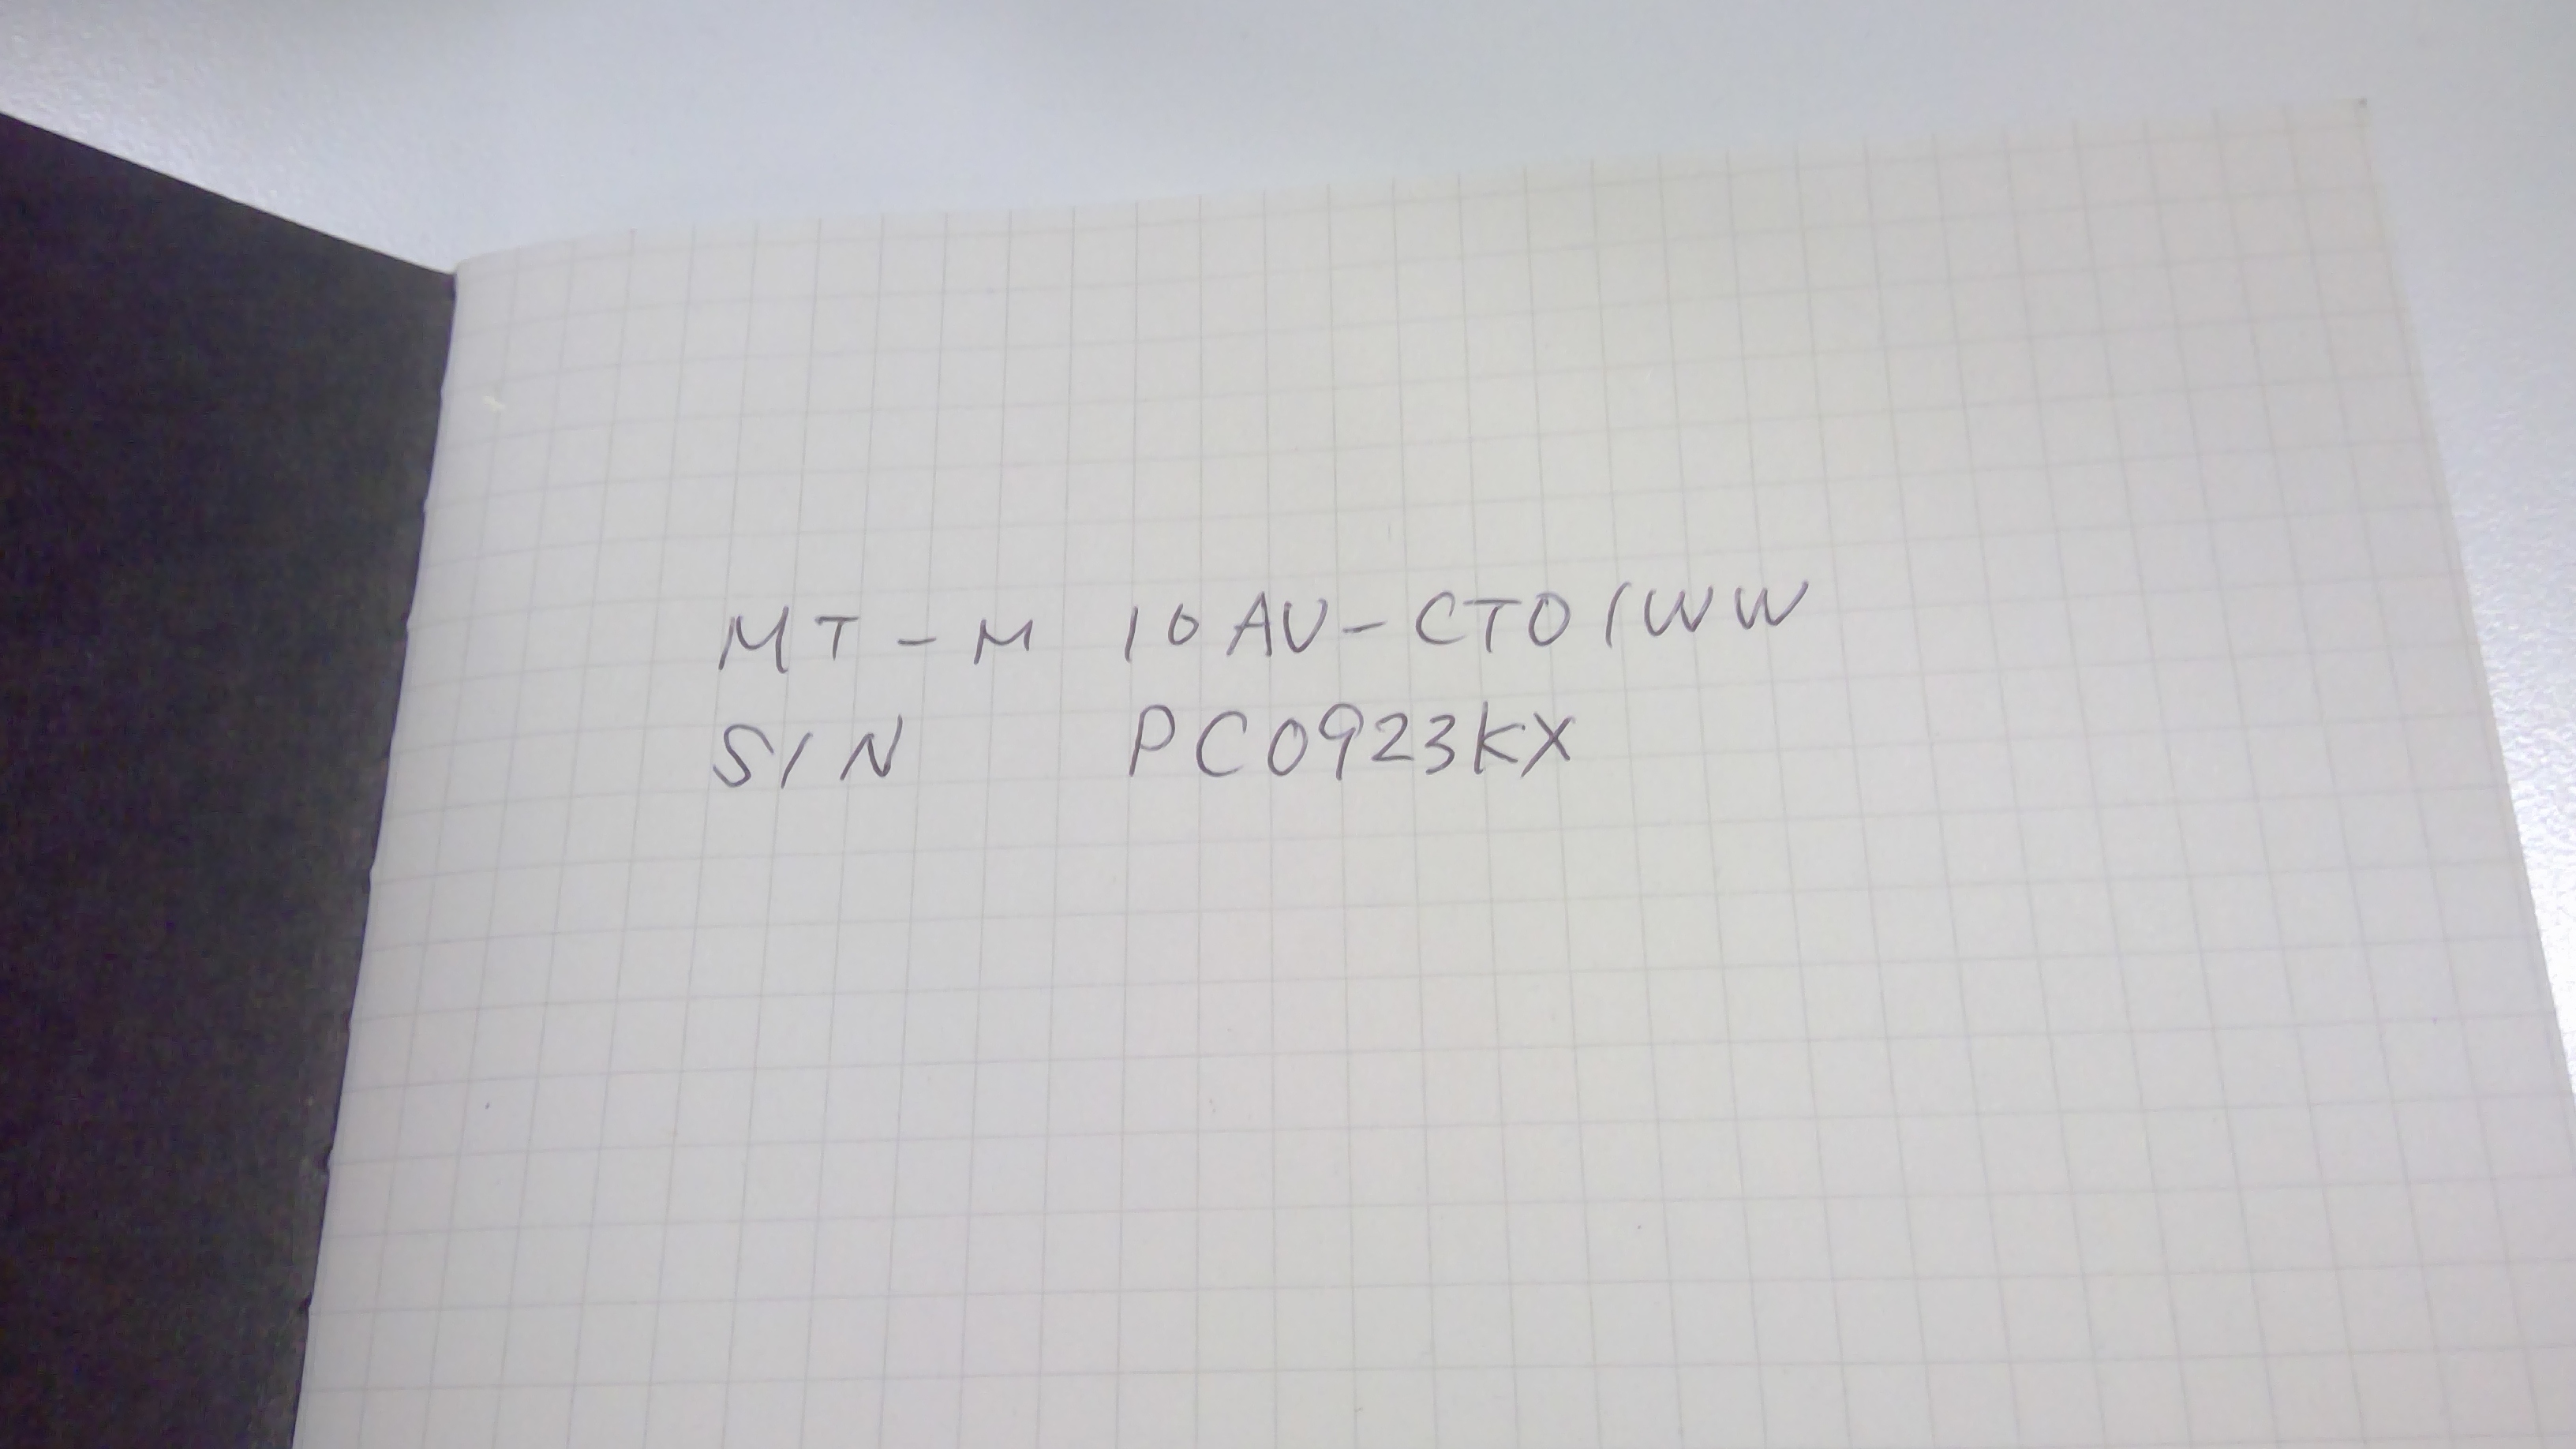 MT-M 10AU-CTO1WW
S/N PC0923KX